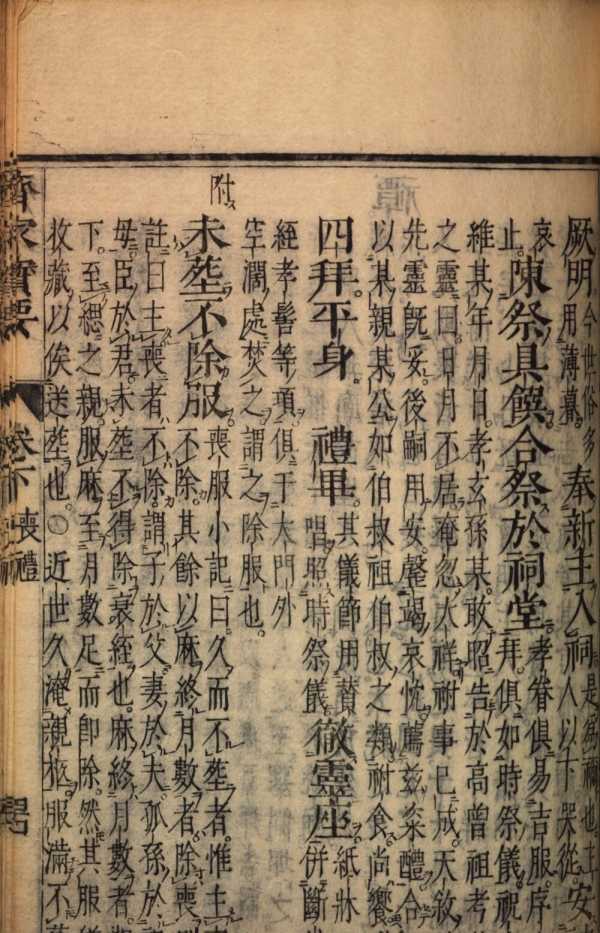 厥明今世俗多用薄暮奉新主入祠是爲祔也主人以下哭從安
哀止陳祭具饌合祭於祠堂孝眷俱易吉服序拜俱如時祭儀祝
維某年月日孝玄孫某敢昭告於高曾祖考
之靈曰日月不居奄忽大祥祔事已成天敘
先靈旣妥後嗣用安罄竭哀忱薦兹粢醴合
以某親某公如伯叔祖伯叔之類祔食尚饗
四拜平身禮畢其儀節用贊唱照時祭儀徹靈座紙牀併斷
絰孝髻等項俱于大門外
空濶處焚之謂之除服也
附未塟不除服喪服小記曰久而不塟者惟主
喪者不除其餘以麻終月數者除喪
註曰主喪者不除謂子於父妻於夫孤孫於
母臣於君未塟不得除衰絰也麻終月數者
下至緦之親服麻至月數足而即除然其服
收藏以俟送塟也○近世久淹親柩服滿不
齊家寶要 卷下 喪禮